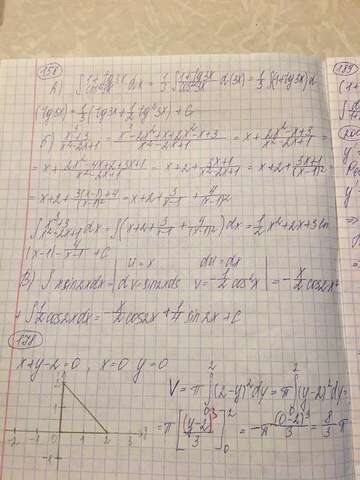 158
а) ∫ (1+tg3x)/(cos²3x) dx = 1/3 ∫ (1+tg3x)/(cos²3x) d(3x) = 1/3 ∫(1+tg3x)d
(tg3x) = 1/3 (tg3x + 1/2 tg²3x) + C
б) (x³+3)/(x²-2x+1) = (x³-2x²+x+2x²-x+3)/(x²-2x+1) = x + (2x²-x+3)/(x²-2x+1) =
= x + (2x²-4x+2+3x+1)/(x²-2x+1) = x+2+ (3x+1)/(x²-2x+1) = x+2+ (3x+1)/(x-1)²
= x+2+ (3(x-1)+4)/(x-1)² = x+2+ 3/(x-1) + 4/(x-1)²
∫ (x³+3)/(x²-2x+1) dx = ∫(x+2+ 3/(x-1) + 4/(x-1)²) dx = 1/2 x² + 2x + 3 ln
(x-1) - 4/(x-1) + C
в) ∫ x sin2x dx = | u=x du=dx
dv=sin2xdx v=-1/2 cos2x | = -x/2 cos2x
+ ∫ 1/2 cos2x dx = -x/2 cos2x + 1/4 sin2x + C
178
x+y-2=0, x=0 y=0
V = π ∫₀² (2-y)² dy = π ∫₀² (y-2)² dy =
= π [(y-2)³/3]₀² = -π (0-2)³/3 = 8/3 π
189